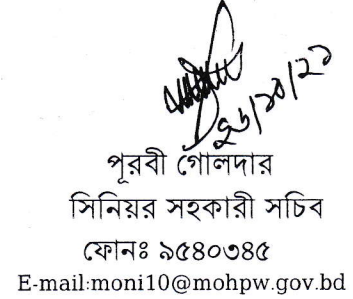 ২৬/১০/২১
পূরবী গোলদার
সিনিয়র সহকারী সচিব
ফোনঃ ৯৫৪০৩৪৫
E-mail:moni10@mohpw.gov.bd